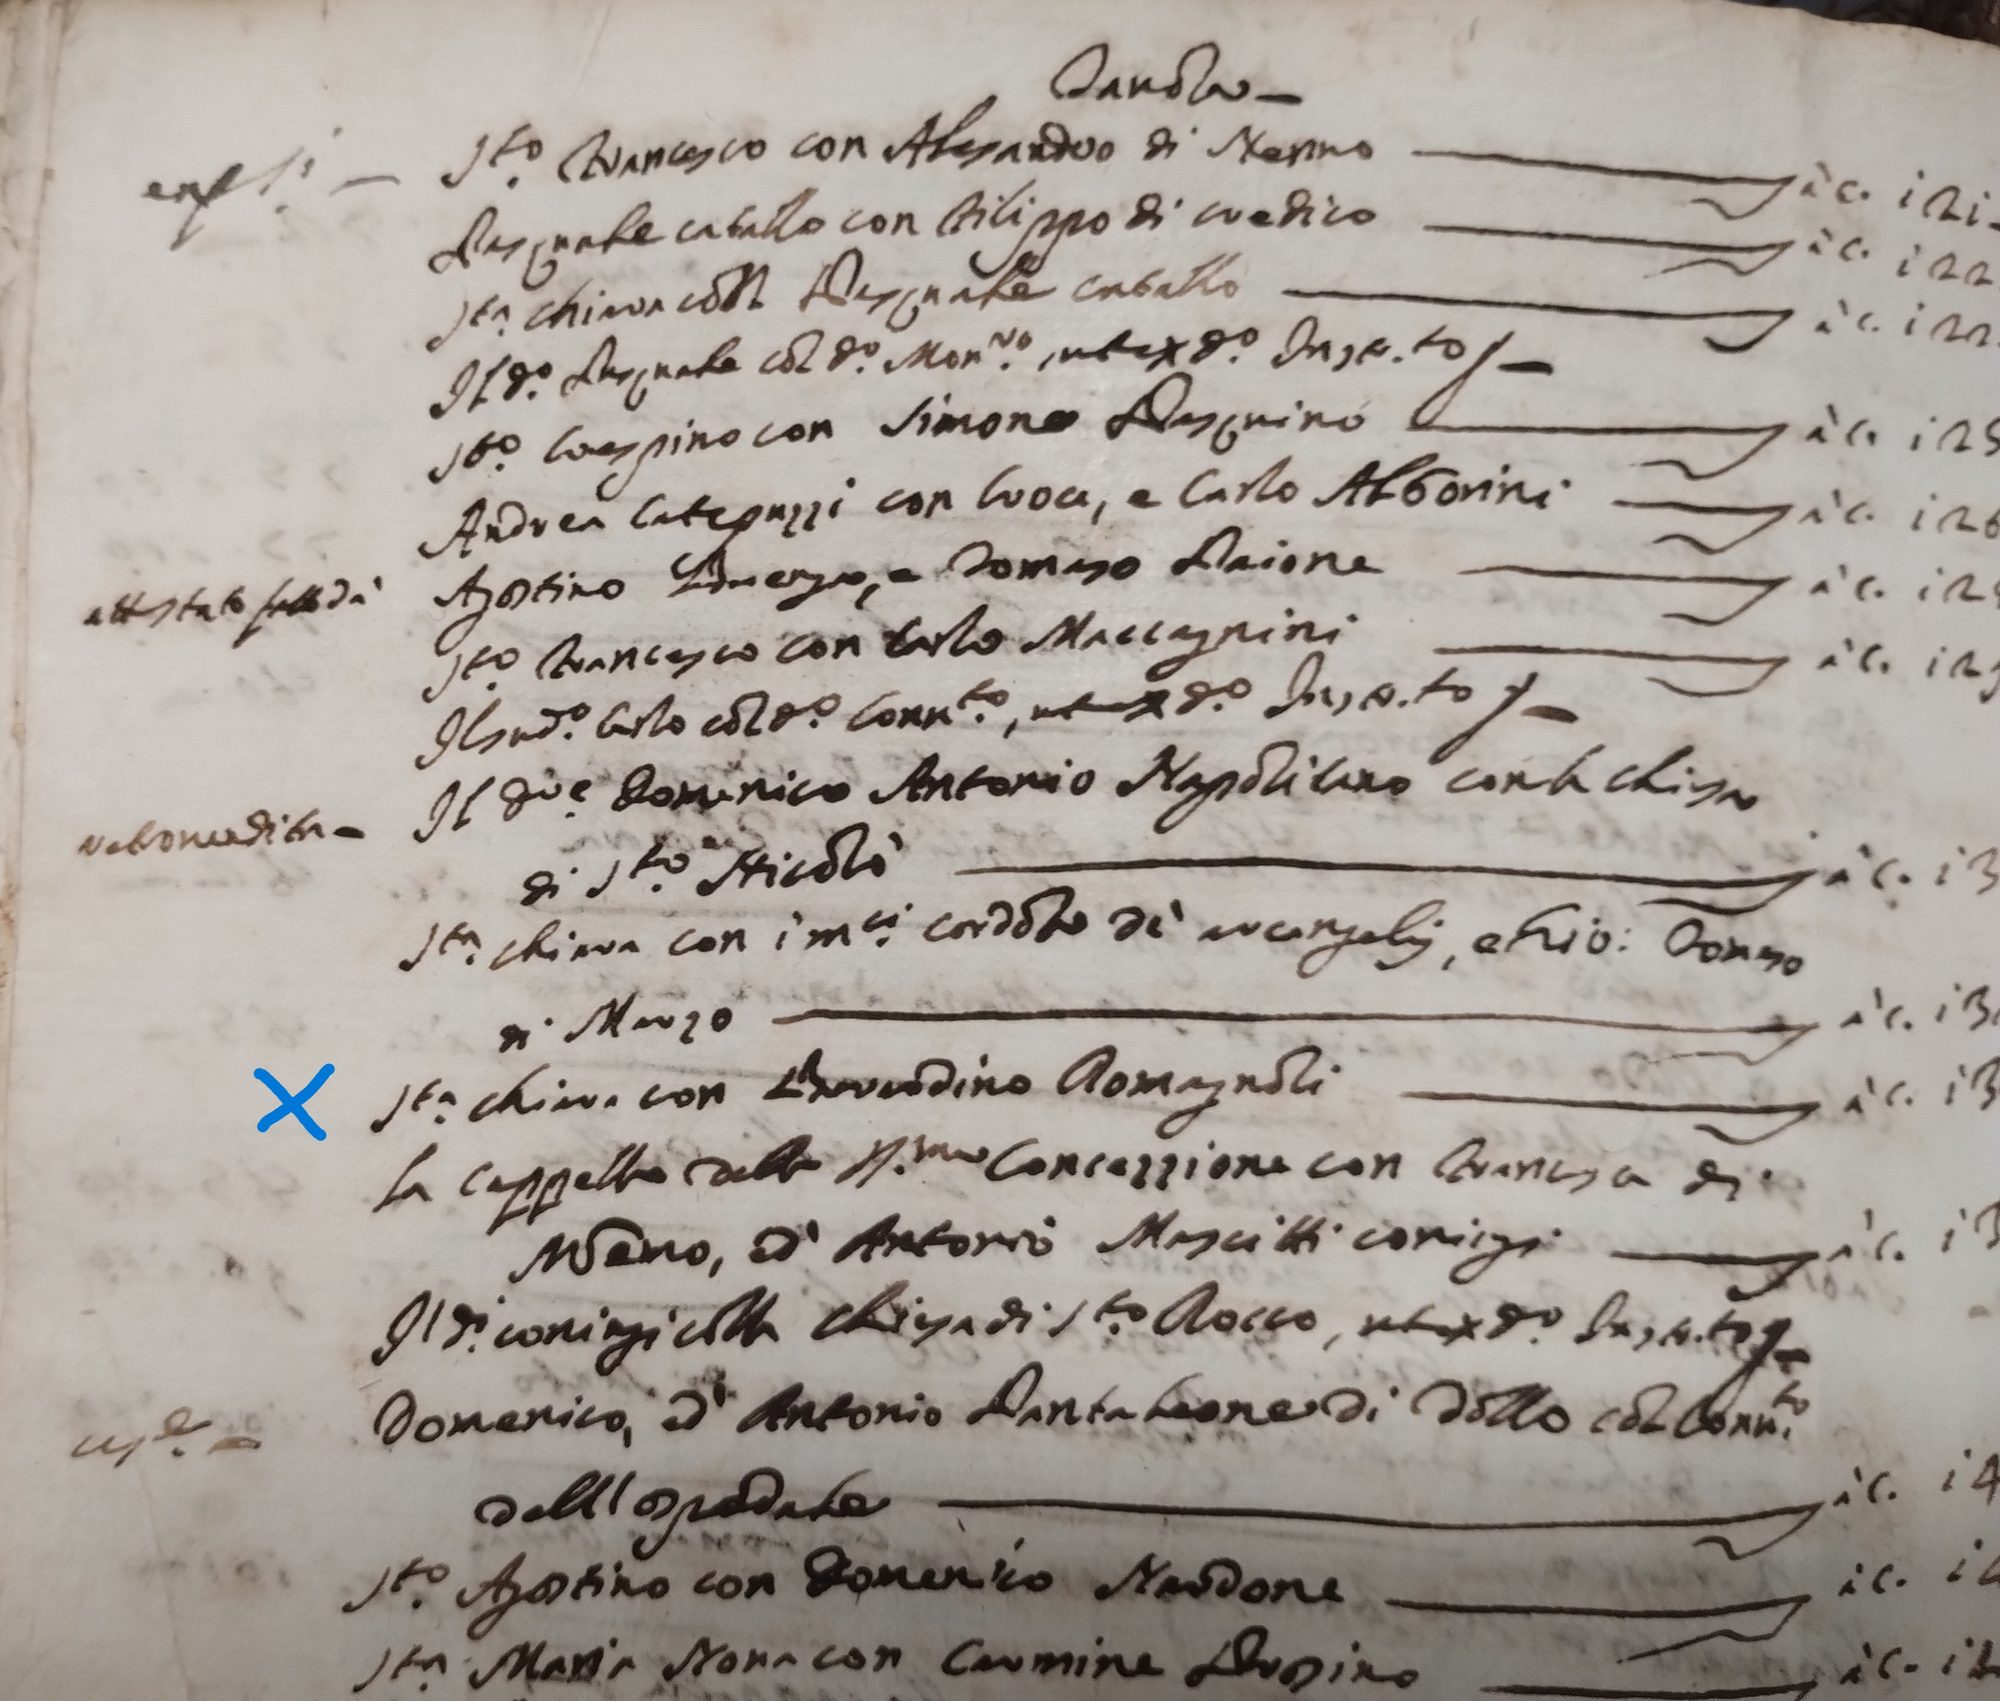 Tavola
S.to Francesco con Alesandro di Nenno à c. 121
Pasquale Caballo con Filippo di Credico à c. 122
S.ta Chiara colli Pasquale Caballo à c. 122
Il d.o Pasquale col d.o Mon.ro, ut ex d.o Inst.to
S.to Crespino con Simone Pasquino à c. 125
Andrea con Croce, e Carlo Alborini à c. 126
attestato fatto da Agostino e Tomaso Paione à c. 12
S.to Francesco con Carlo Maccagnini à c. 129
Il sud.o Carlo col d.o Conu.to, ut ex d.o Inst.to
retrovendita Il d.re Domenico Antonio Napolitano con la chiesa
di S.to Nicolò à c. 13
S.ta Chiara con i m.ci Cardolo di Arcangelis, e Gio: Tomaso
di Marzo à c. 13
S.ta Chiara con Berardino Romagnoli à c. 13
la cappella della SS.ma Concezzione con Francesca di
ed' Antonio Mascitti coniugi à c. 13
Il d.i coniugi colla chiesa di S.to Rocco, ut ex d.o Inst.to
Domenico, ed' Antonio Pantaleone di Tollo col Conu.to
dell'ospedale à c. 14
S.to Agostino con Domenico Nardone à c. 14
S.ta Maria Nona con Carmine Crispino à c. 1